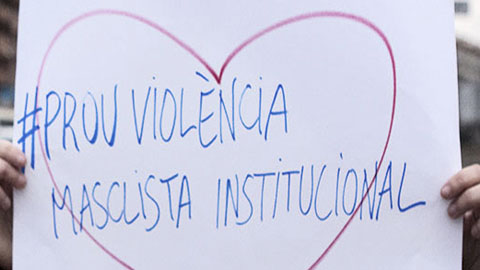 #PROU VIOLÈNCIA
MASCLISTA INSTITUCIONAL